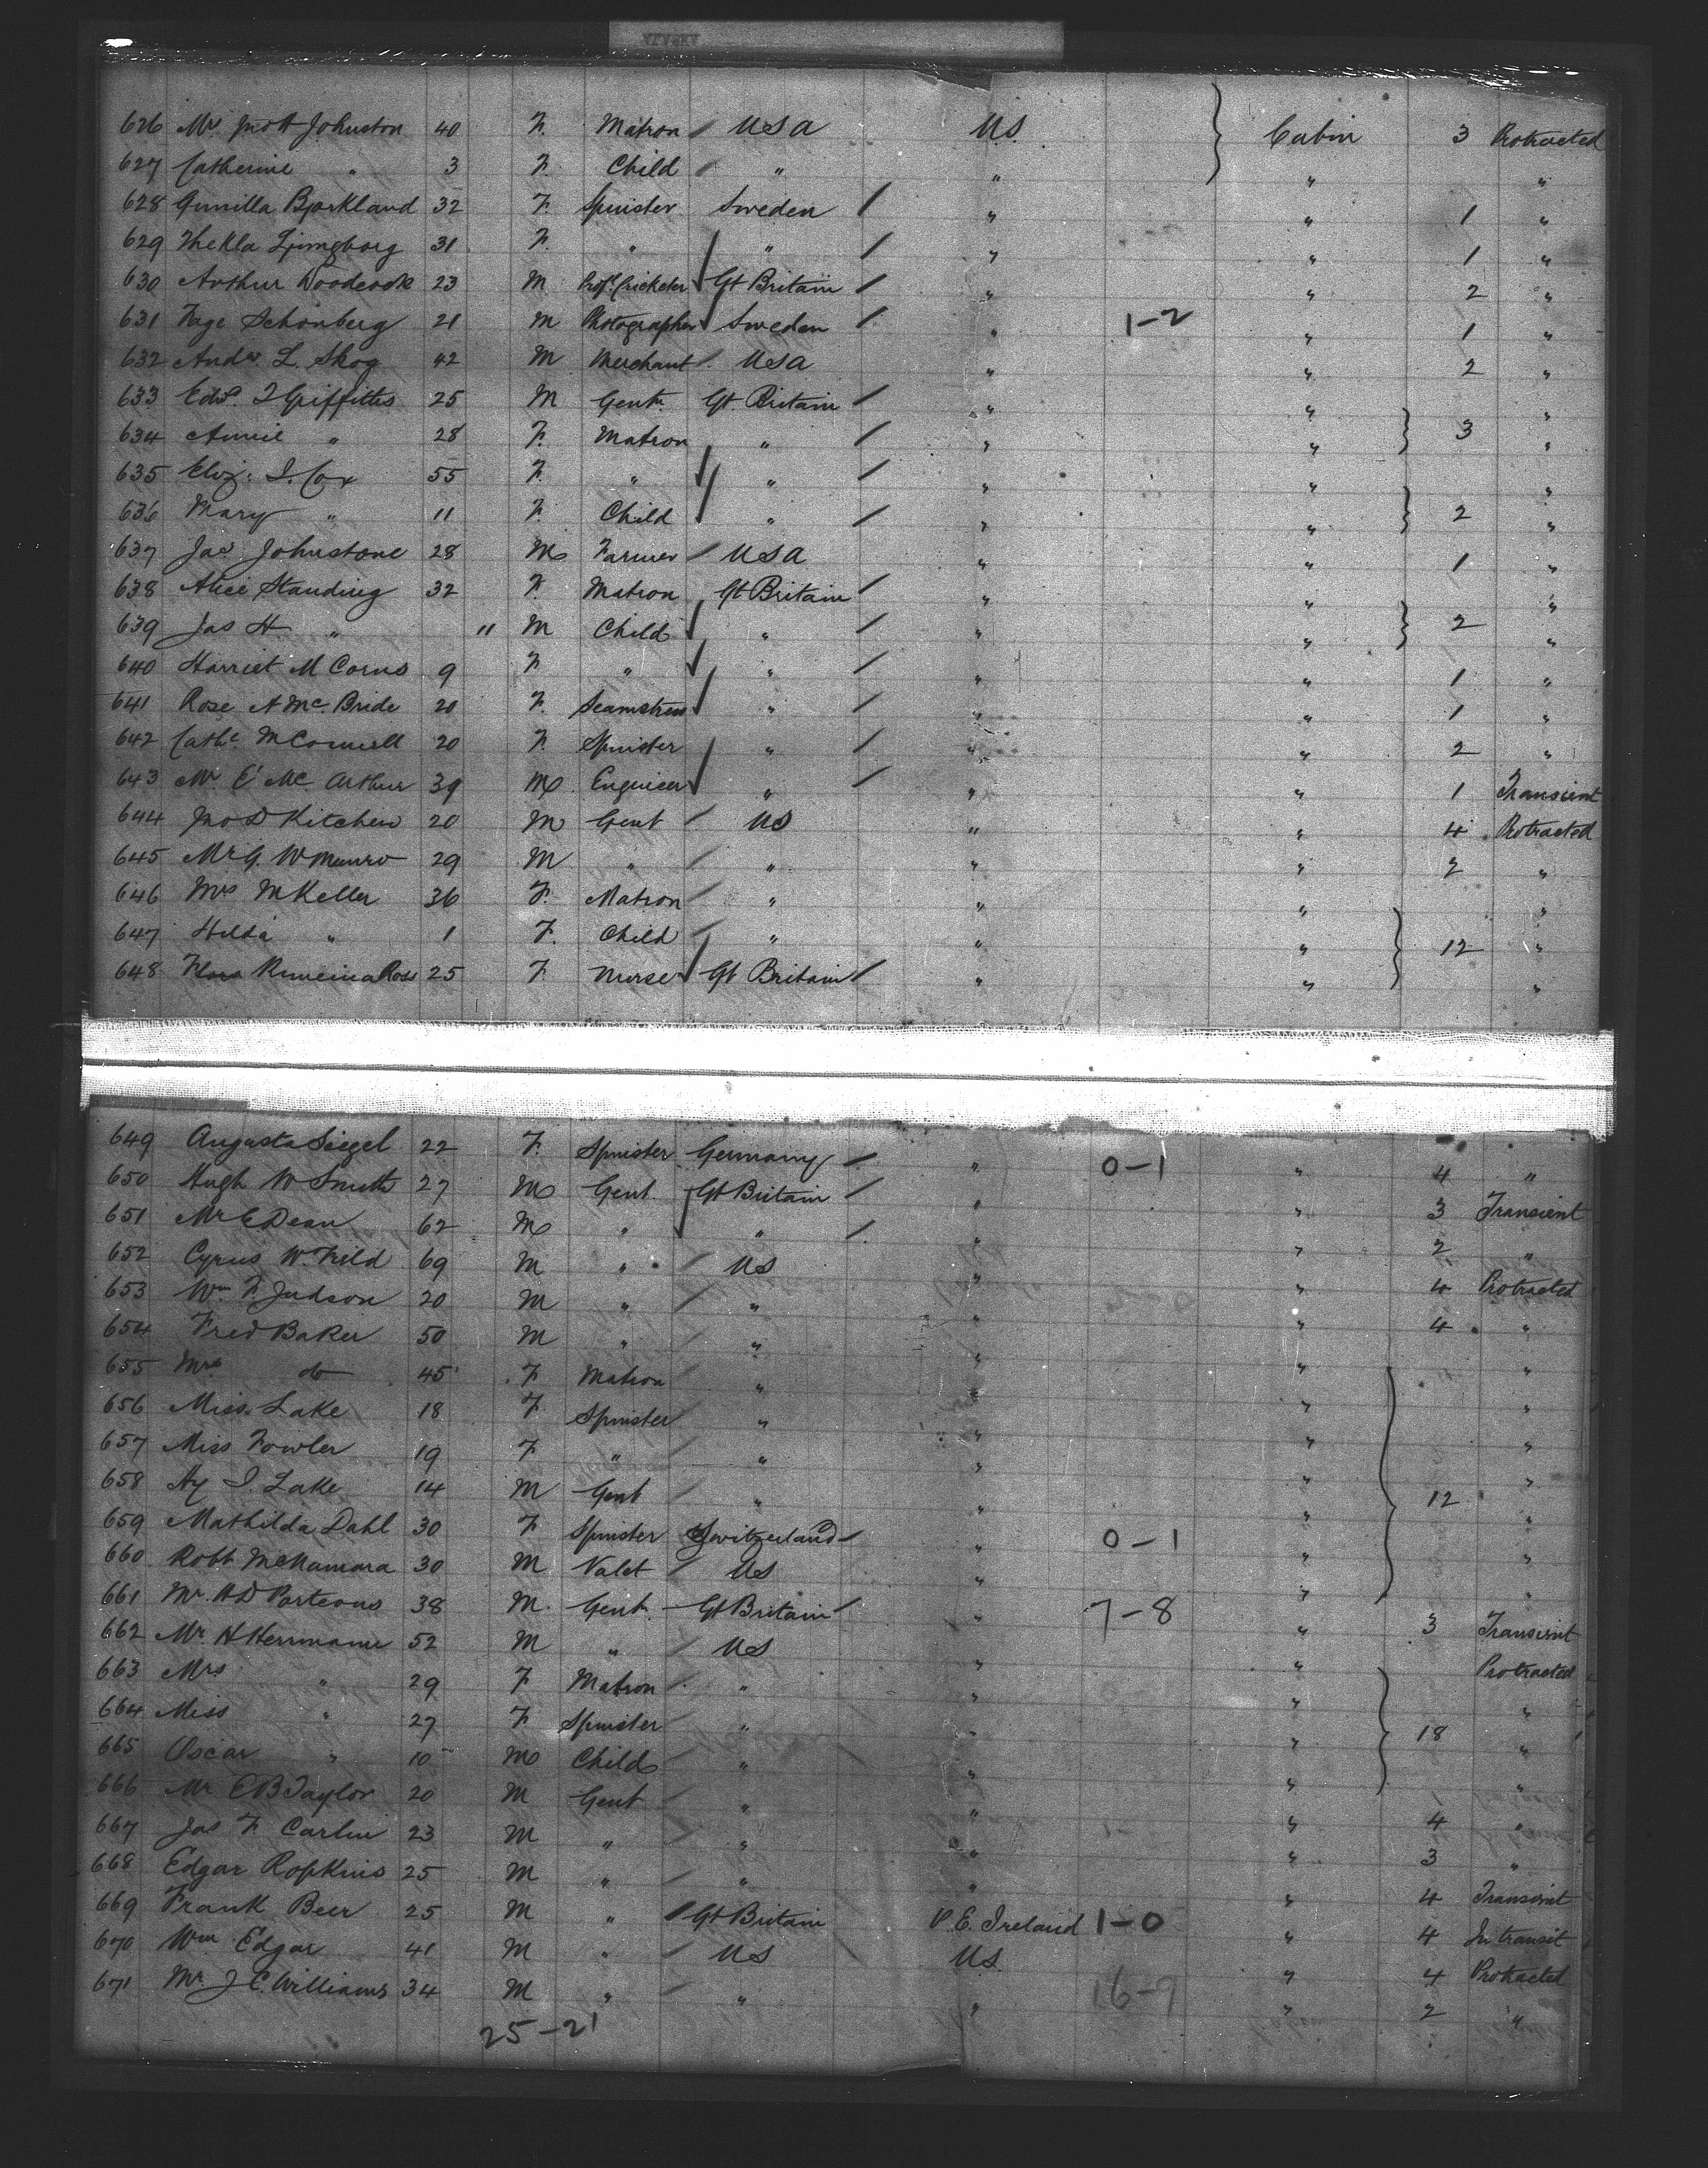 626 Mrs Jno A Johnston 40 F. Matron USA US. Cabin 3 Protracted
627 Catherine " 3 F. Child " " " "
628 Gunilla Bjorkland 32 F. Spinster Sweden " " 1 "
629 Thekla Ljungborg 31 F. " " " " 1 "
630 Arthur Woodcock 23 M Prof. Cricketer Gt Britain " " 2 "
631 Tage Schonberg 21 M Photographer Sweden " 1-2 " 1 "
632 Andw L. Skog 42 M Merchant USA " " 2 "
633 Edwd. T Griffiths 25 M Gent. Gt. Britain " " "
634 Annie " 28 F. Matron " " " 3 "
635 Eliz. J. Cox 55 F. " " " " "
636 Mary " 11 F. Child " " " 2 "
637 Jas Johnstone 28 M Farmer USA " " 1 "
638 Alice Standing 32 F. Matron Gt Britain " " "
639 Jas H. " 11 M Child " " " 2 "
640 Harriet M Corns 9 F " " " " 1 "
641 Rose A Mc. Bride 20 F. Seamstress " " " 1 "
642 Cathe. McConnell 20 F. Spinster " " " 2 "
643 Mr E Mc Arthur 39 M Engineer " " " 1 Transient
644 Jno D Kitchen 20 M Gent US " " 4 Protracted
645 Mr G. W Munro 29 M " " " " 2 "
646 Mrs McKeller 36 F. Matron " " " "
647 Hilda " 1 F. Child " " " 12 "
648 Ross 25 F Nurse Gt Britain " " "
649 Augusta Siegel 22 F. Spinster Germany " 0-1 " 4 "
650 Hugh W Smith 27 M Gent Gt Britain " " 3 Transient
651 Mr E Dean 62 M " " " " 2 "
652 Cyrus W. Field 69 M " US " " 4 Protracted
653 Wm F. Judson 20 M " " " " 4 "
654 Fred Baker 50 M " " " " "
655 Mrs do 45 F Matron " " " "
656 Miss Lake 18 F Spinster " " " "
657 Miss Fowler 19 F " " " " "
658 Hy J. Lake 14 M Gent " " " 12 "
659 Mathilda Dahl 30 F Spinster Switzerland " 0-1 " "
660 Robt McNamara 30 M Valet US " " "
661 Mr. H D Porteous 38 M. Gent. Gt Britain " 7-8 " 3 Transient
662 Mr H Herrmann 52 M " US " " Protracted
663 Mrs " 29 F Matron " " " "
664 Miss " 27 F Spinster " " " 18 "
665 Oscar " 10 M Child " " " "
666 Mr E B Taylor 20 M Gent " " " 4 "
667 Jas F Carlin 23 M " " " " 3 "
668 Edgar Ropkins 25 M " " " " 4 Transient
669 Frank Beer 25 M " Gt Britain P. E. Ireland 1-0 " 4 In transit
670 Wm Edgar 41 M " US US. " 4 Protracted
671 Mr. J C. Williams 34 M " " " 16-9 " 2 "
25-21